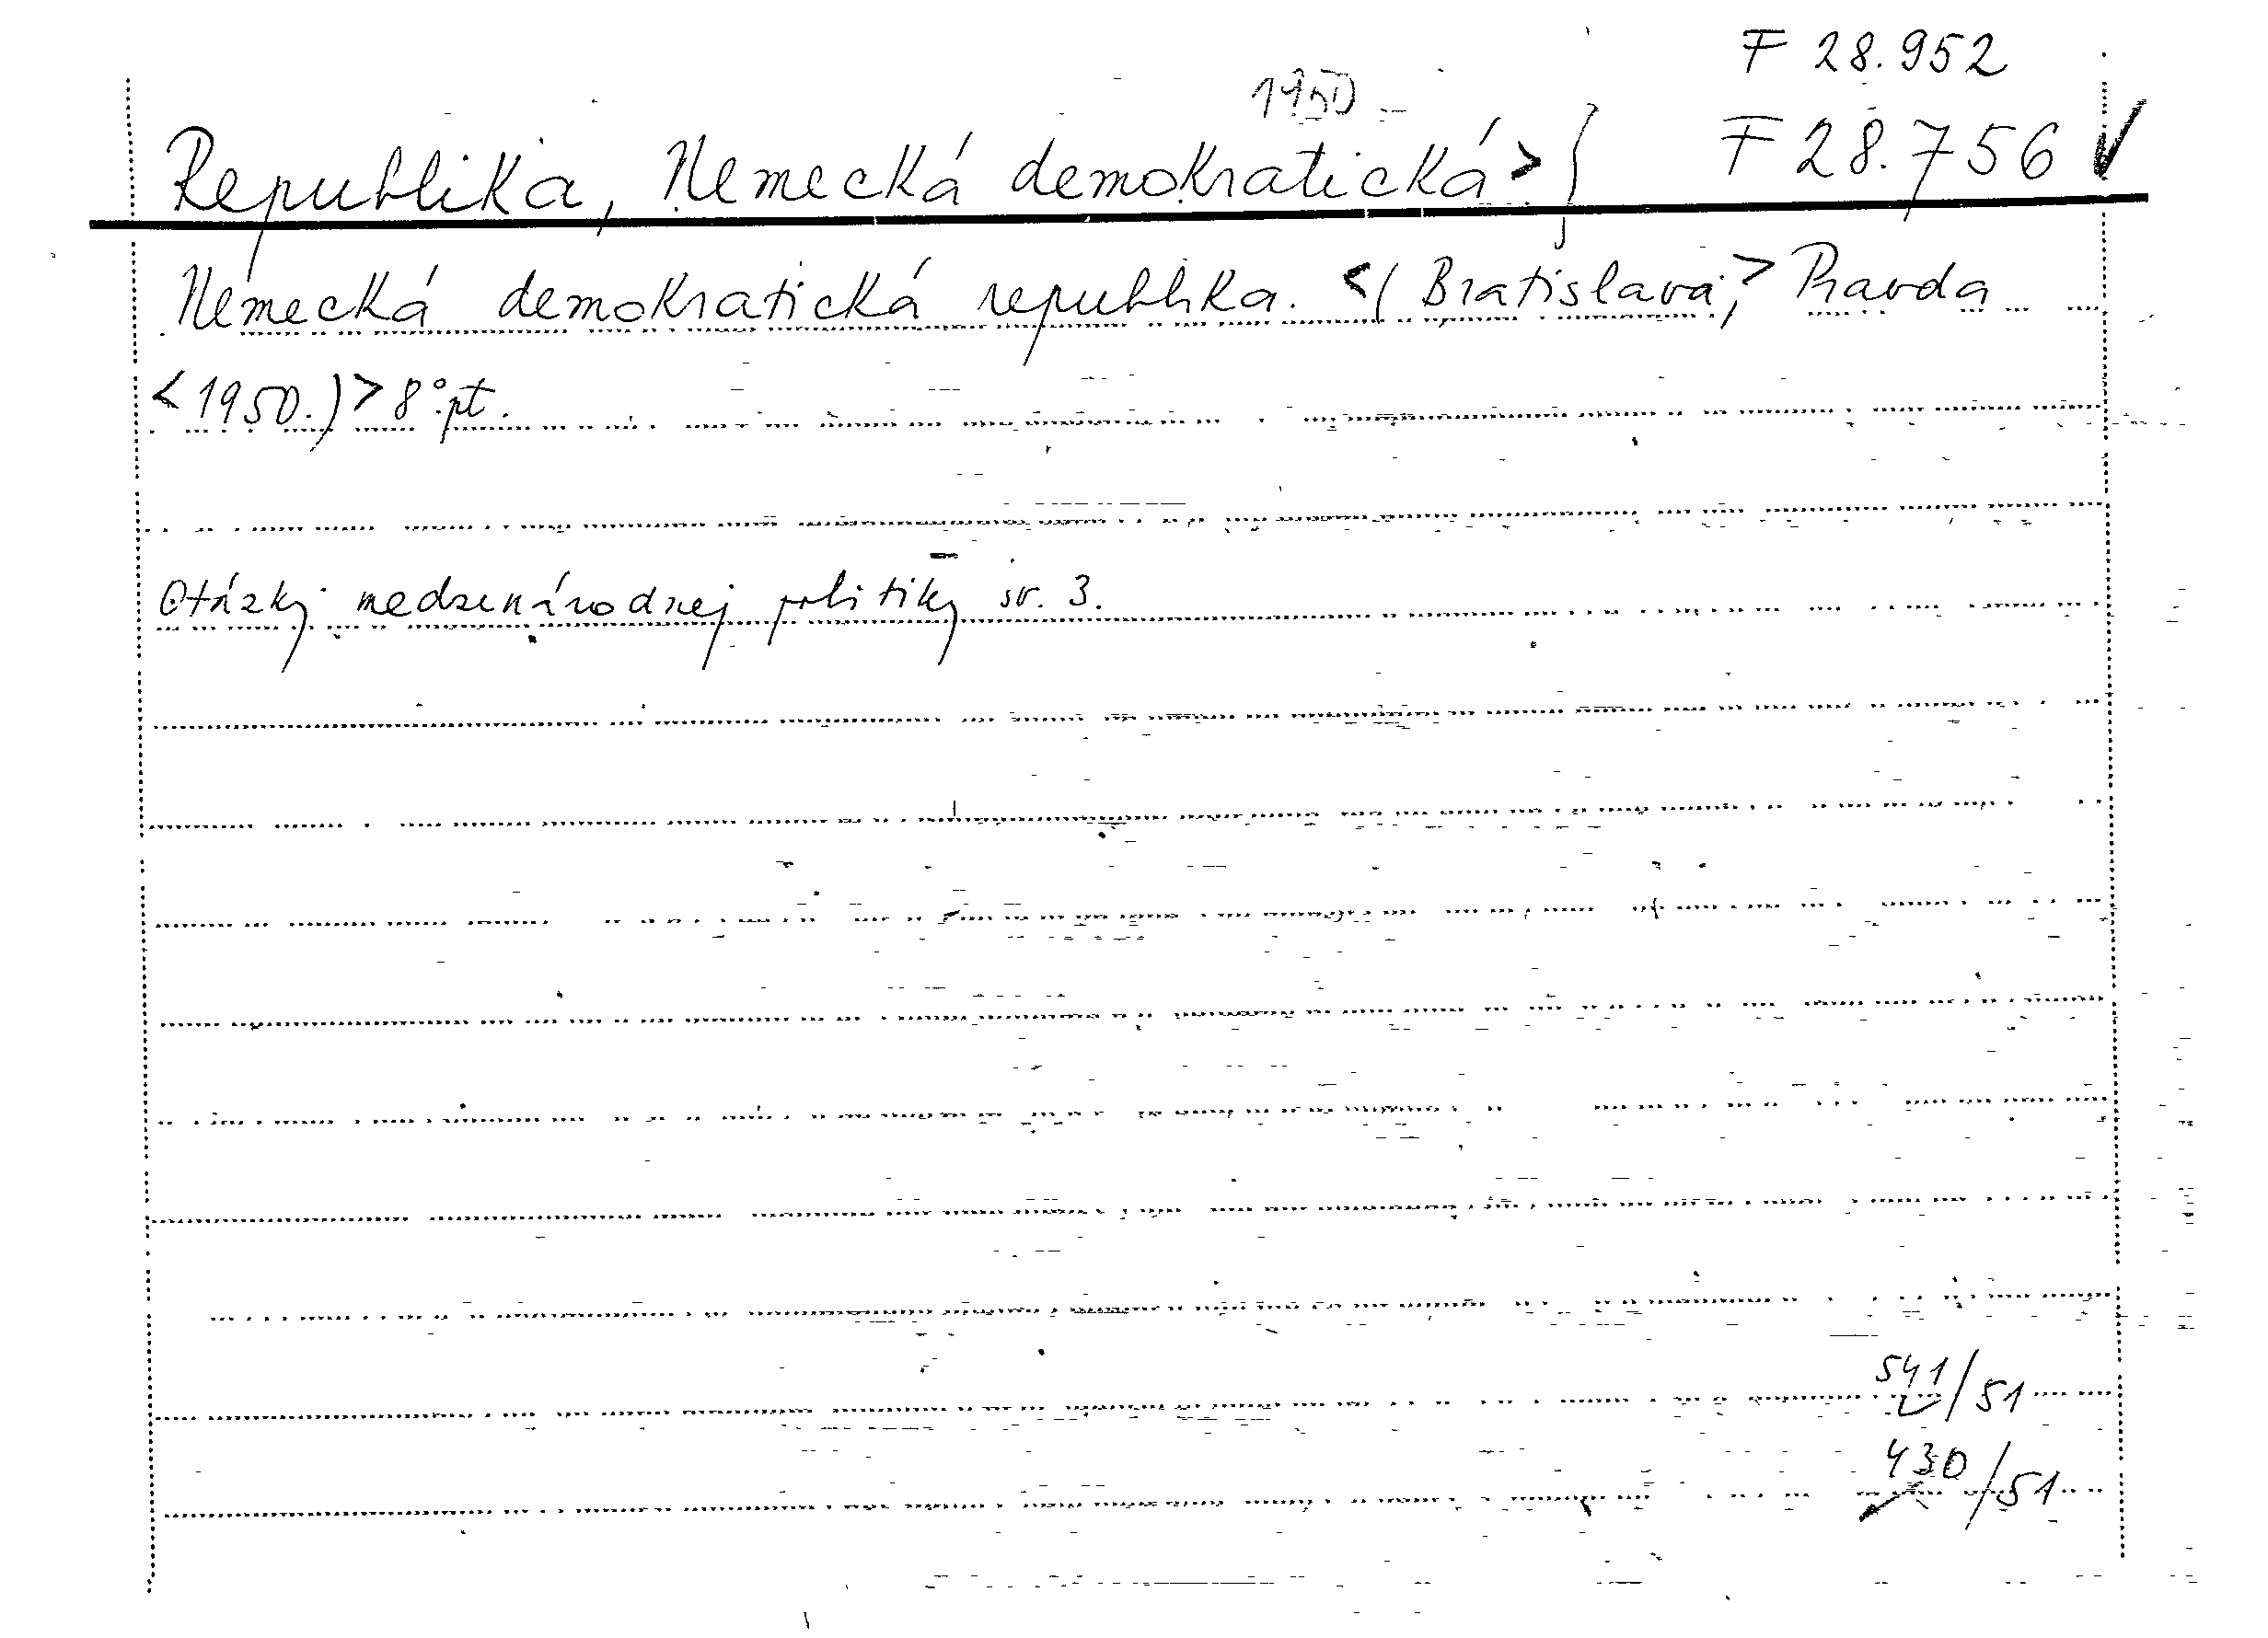 F 28.952
1950
Republika, Nemecká demokratická > } F 28.756 ✓
Nemecká demokratická republika. <(Bratislava,> Pravda
<1950.)> 8°. pt.
Otázky medzinárodnej politiky sv. 3.
541/51
430/51